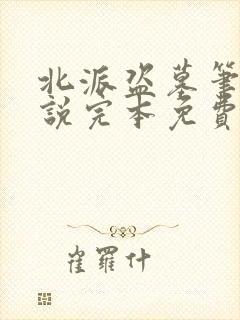 北派盗墓筆
說完本免費
崔羅什